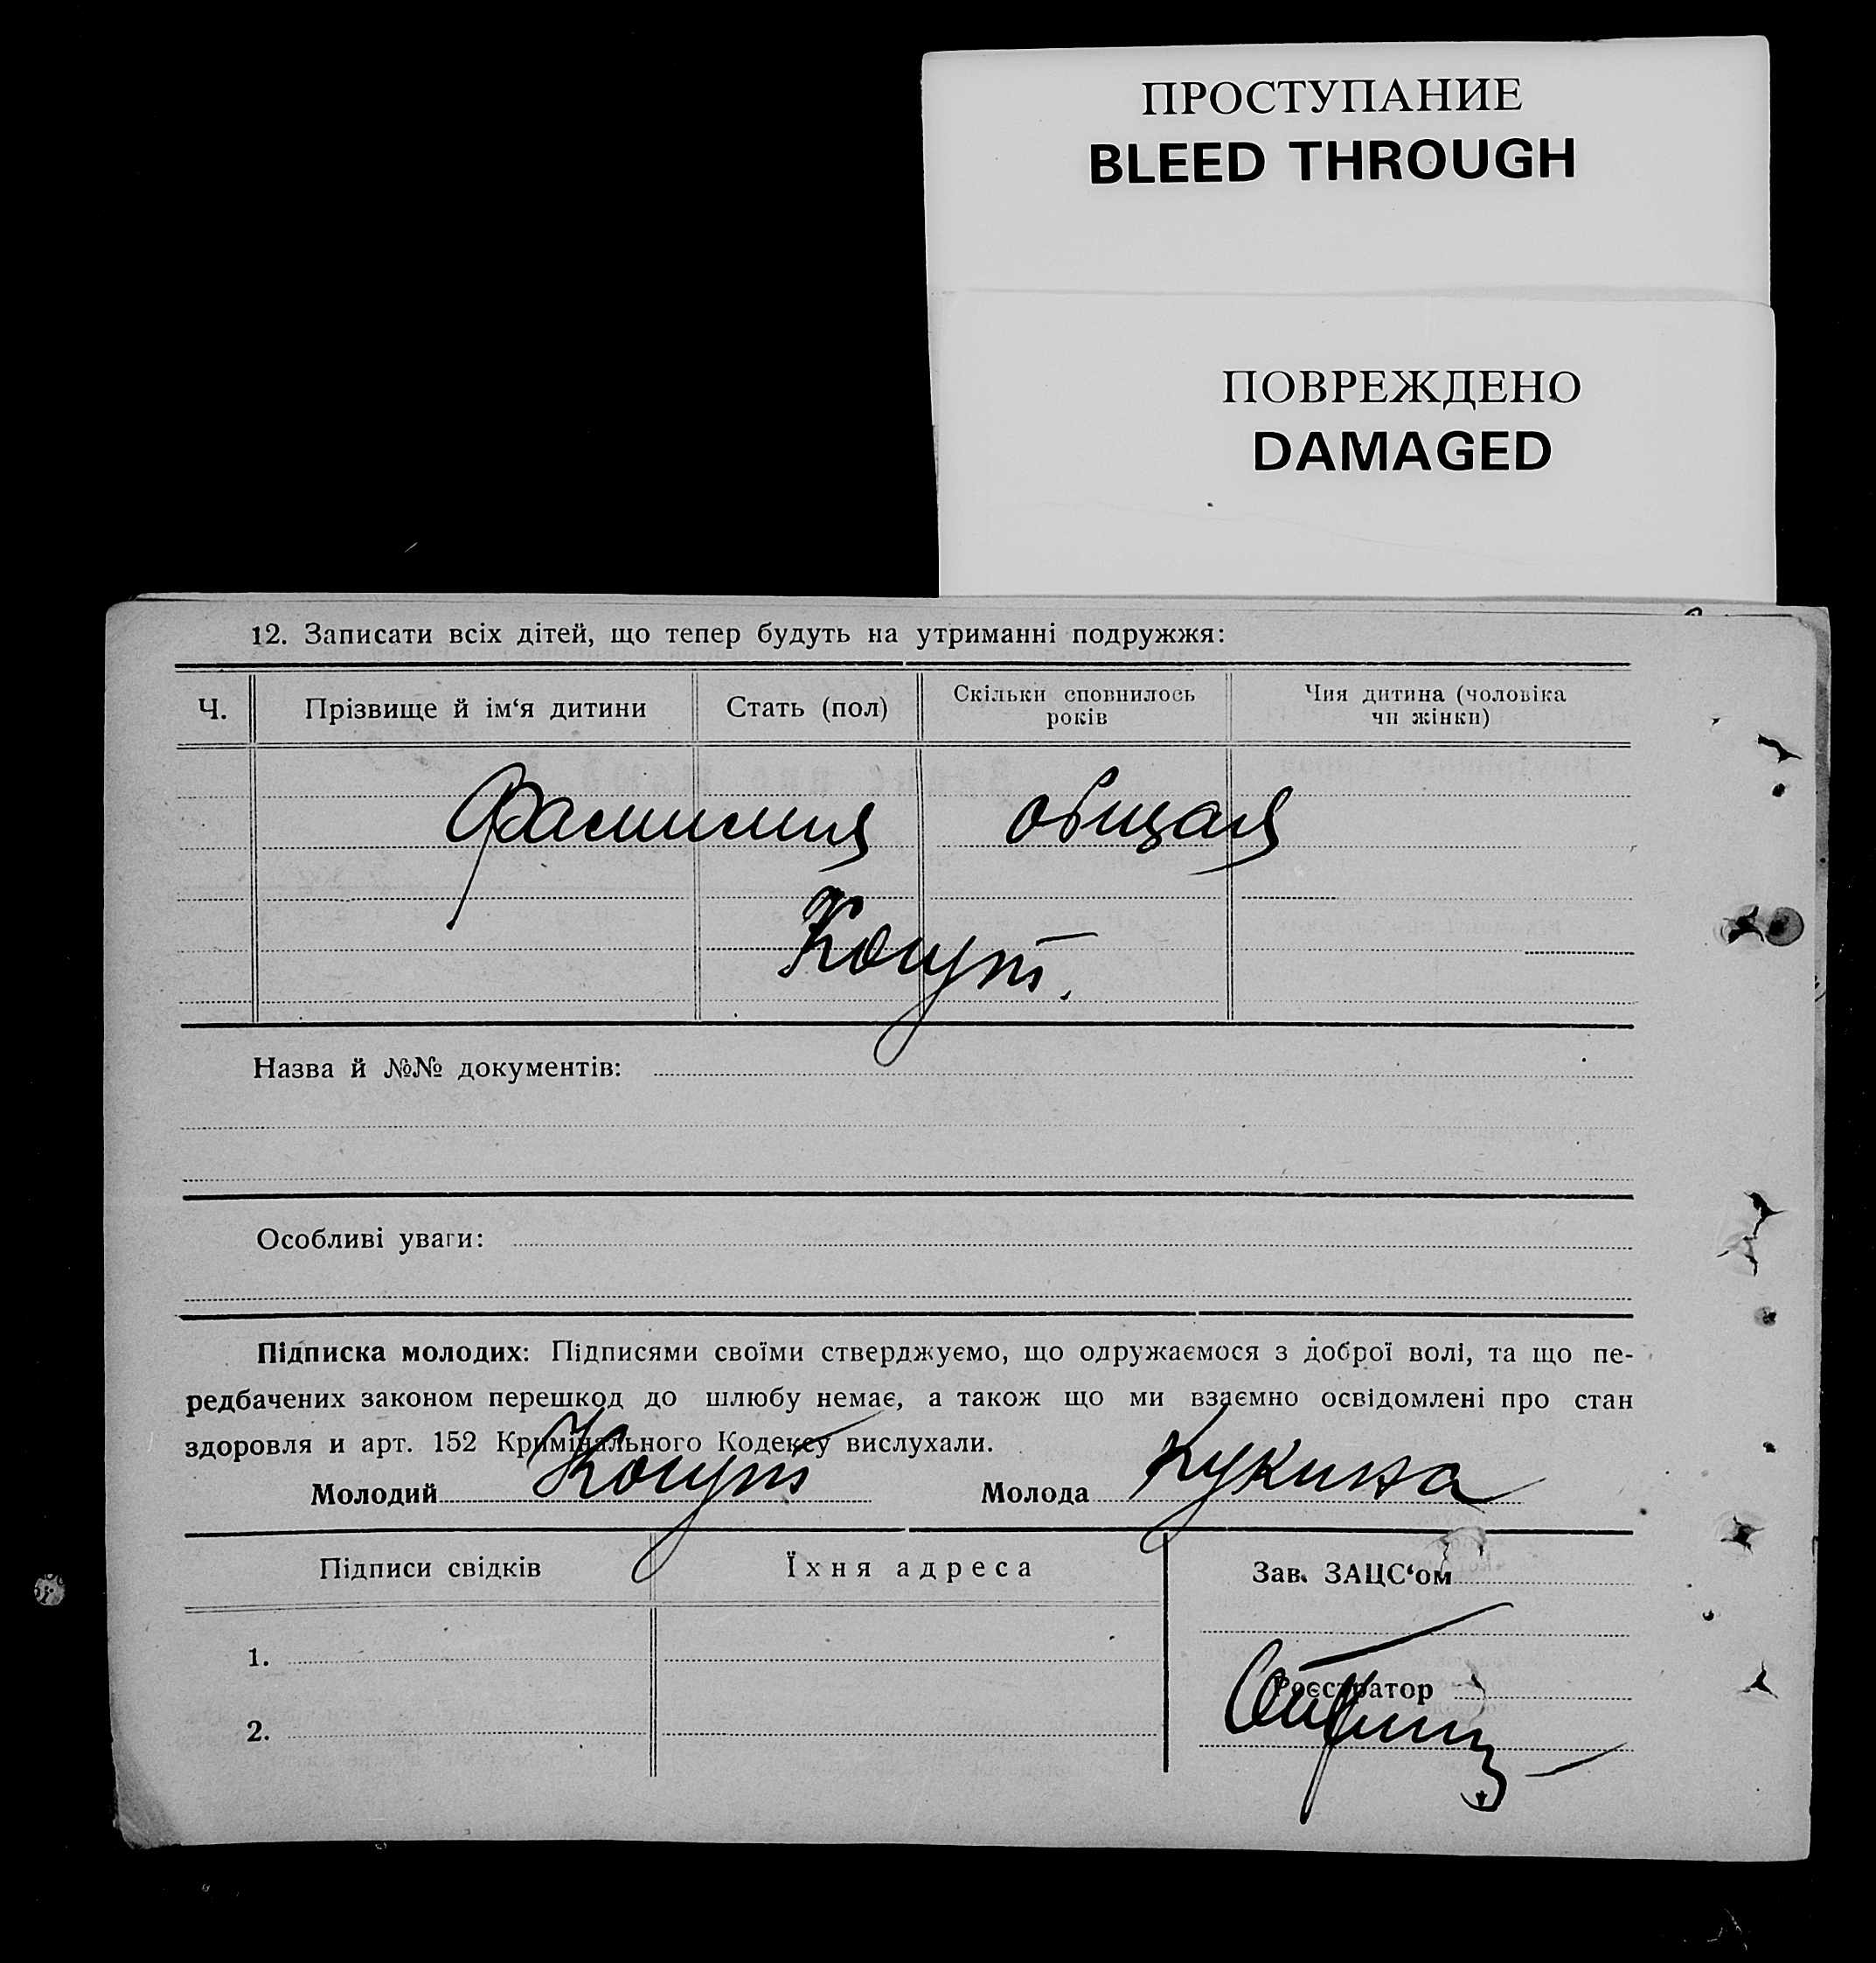 ПРОСТУПАНИЕ
BLEED THROUGH
ПОВРЕЖДЕНО
DAMAGED
12. Записати всіх дітей, що тепер будуть на утриманні подружжя:
Ч. Прізвище й ім‘я дитини Стать (пол) Скільки сповнилось років Чия дитина (чоловіка чи жінки)
Фамилия общая
Когут.
Назва й №№ документів:
Особливі уваги:
Підписка молодих: Підписями своїми стверджуємо, що одружаємося з доброї волі, та що пе-
редбачених законом перешкод до шлюбу немає, а також що ми взаємно освідомлені про стан
здоровля и арт. 152 Кримінального Кодексу вислухали.
Молодий Когут Молода Кукина
Підписи свідків Їхня адреса Зав. ЗАЦС‘ом
1.
Реєстратор
2.